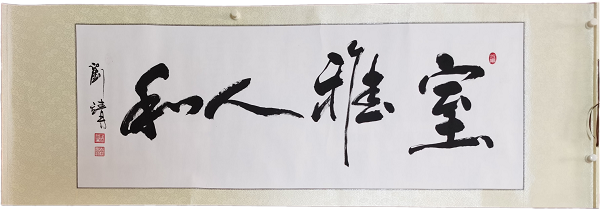 室雅人和
劉靖